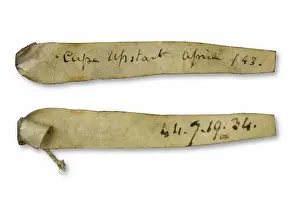 Cape Upstart April 143.
44.7.19.34.